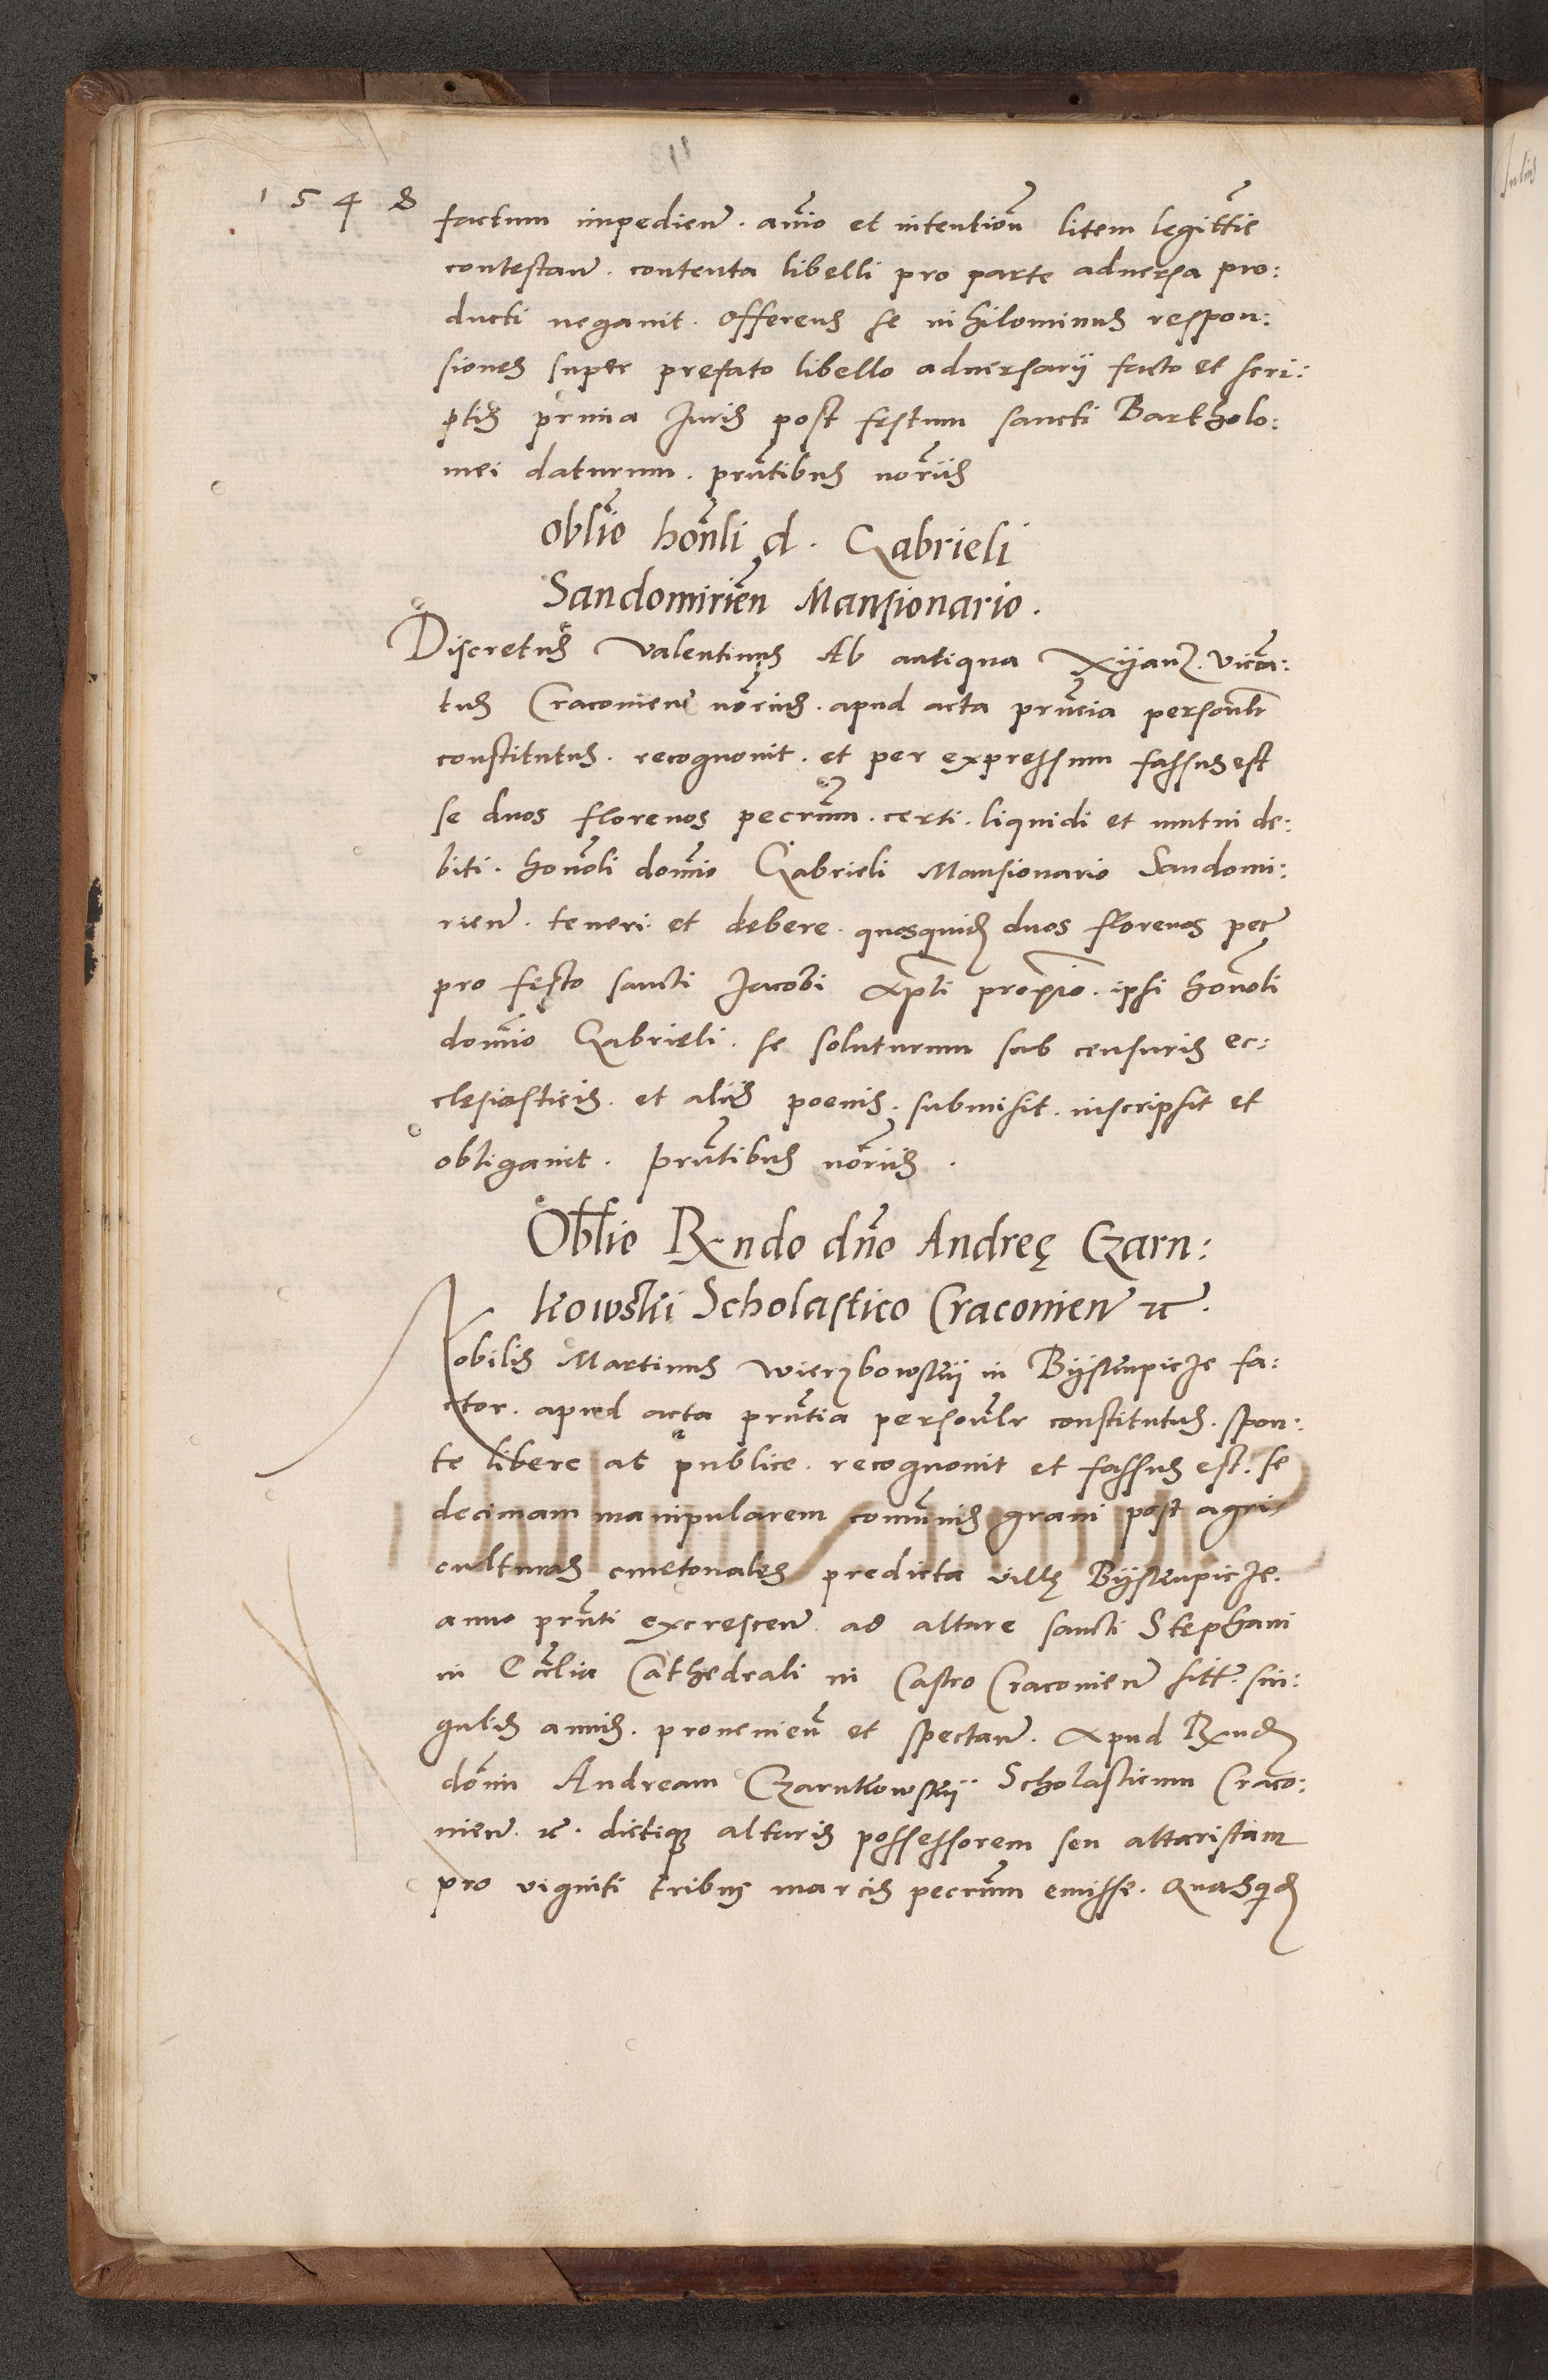 1548
factum impedien̄. aīo et intentioñ litem legitt̃ie
contestan̄. contenta libelli pro parte aduersa pro:
ducti negauit. offerens se nihilominus respon:
siones super prefato libello aduersarij facto et scri:
ptis prima Juris post festum sancti Bartholo:
mei daturum. pñtibus noriis
Obłie honli d. Gabrieli
Sandomirien̄ Mansionario.
Discretus Valentinus Ab antiqua Xyanz. vica:
tus Cracouien̄ norius. apud acta pñcia personlr
constitutus. recognouit. et per expressum fassus est
se duos florenos pecunm. certi. liquidi et mutui de:
biti. honoli domīo Gabrieli Mansionario Sandomi:
rien̄. teneri et debere. quosquid̃ duos florenos pec̄
pro festo sancti Jacobi Apli proxīo. ipsi honoli
domīo Gabrieli. se soluturum sub censuris ec:
clesiasticis. et aliis poenis. submisit. inscripsit et
obligauit. pñtibus noriis.
Obłie Rx̃ndo dño Andreę Czarn:
kowski Scholastico Cracouien̄ ꝛc.
Nobilis Martinus Wierzbowskij in Bijskupicze fa:
ctor. apud acta pñtia personlr constitutus. spon:
te libere ac publice. recognouit et fassus est. se
decimam manipularem comūnis grani post agri
culturas cmetonales predicta villę Bijskupicze.
anno pñti excrescen̄. ad altare sancti Stephani
in Ecclia Cathedrali in Castro Cracouien̄ sitt̄. sin:
gulis annis. prouenien̄ et spectan̄. Apud Rx̃nd̃
dom̄in Andream Czarnkowskij Scholasticum Craco:
uien̄. ꝛc. dictiq̨ altaris possessorem seu altaristam
pro viginti tribus marcis pecunm emisse. Quasqd̃